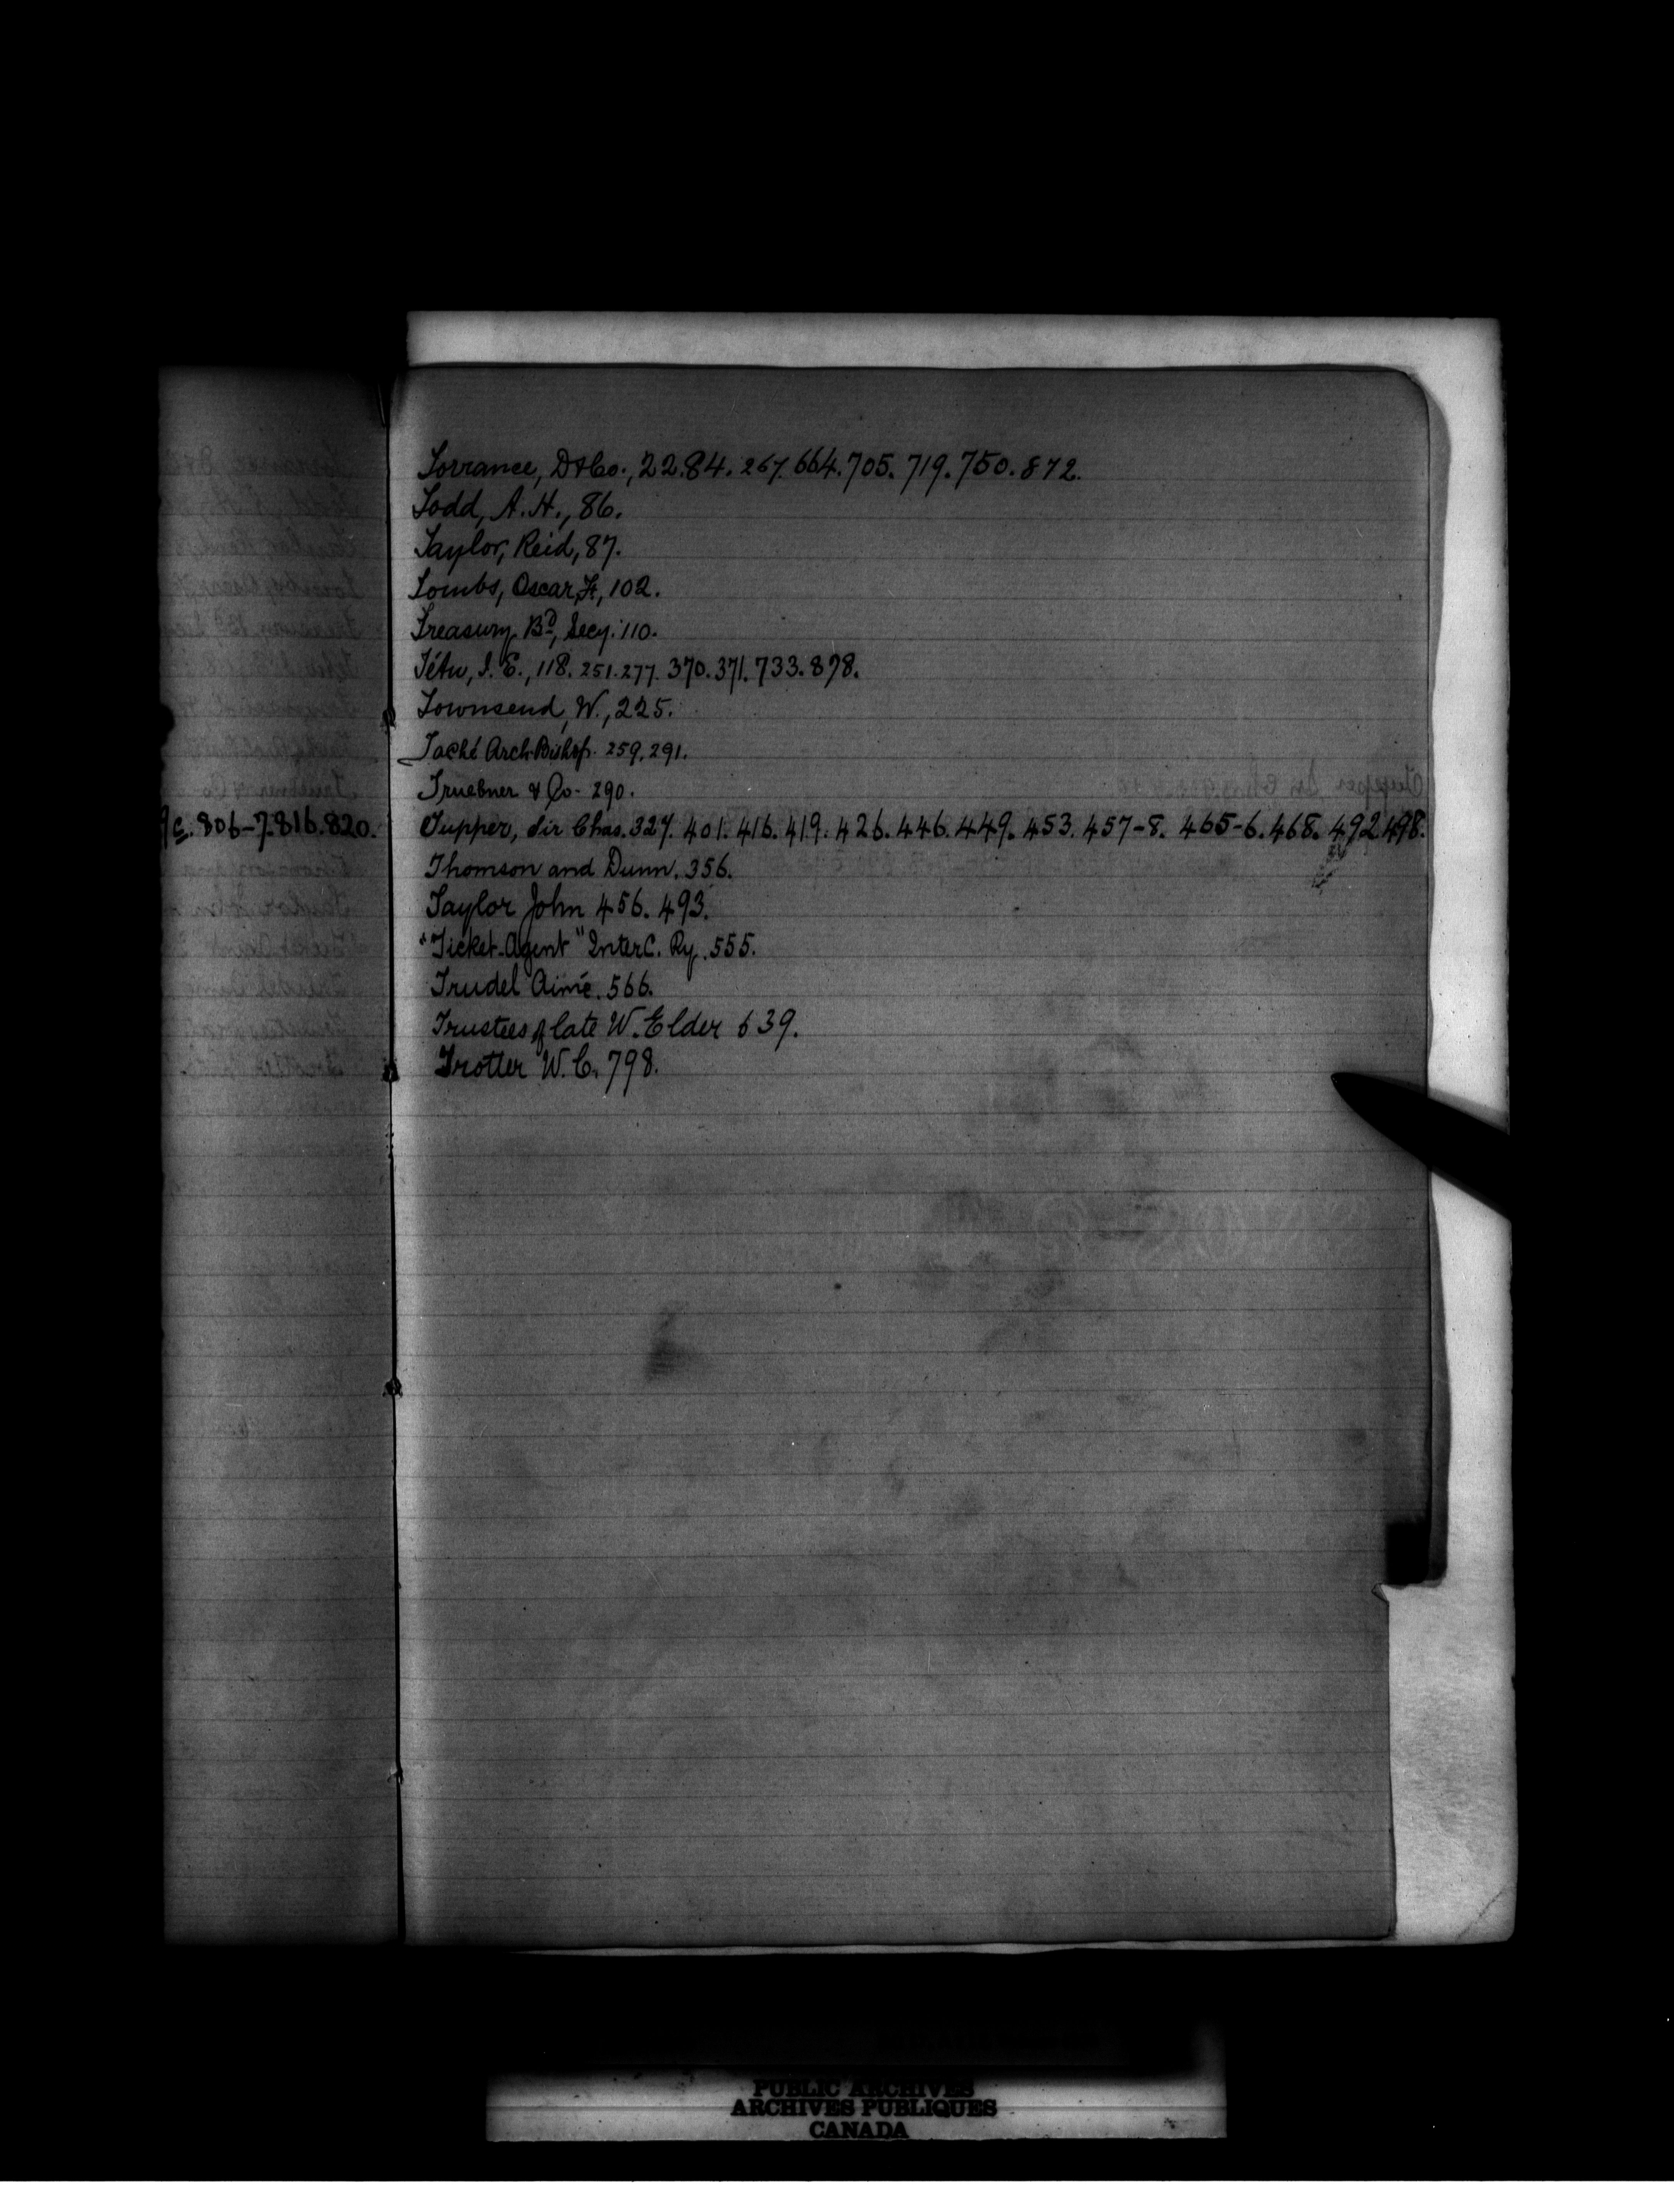 Torrance, D & Co., 22.84. 267. 664. 705. 719. 750. 872.
Todd, A. H., 86.
Taylor, Reid, 87.
Tombs, Oscar, 102.
Treasury Bd, Secy. 110.
Têtu, I. E., 118. 251. 277. 370. 371. 733. 878.
Townsend, W., 225.
Taché Arch-Bishop. 259, 291.
Truebner & Co - 290.
806-7. 816. 820.
Tupper, Sir Chas. 327. 401. 416. 419. 426. 446. 449. 453. 457-8. 465-6. 468. 492. 498.
Thomson and Dunn. 356.
Taylor John 456. 493.
"Ticket-Agent" Inter C. Ry. 555.
Trudel Aimé. 566.
Trustees of late W. Elder 639.
Trotter W. C. 798.
PUBLIC ARCHIVES
ARCHIVES PUBLIQUES
CANADA